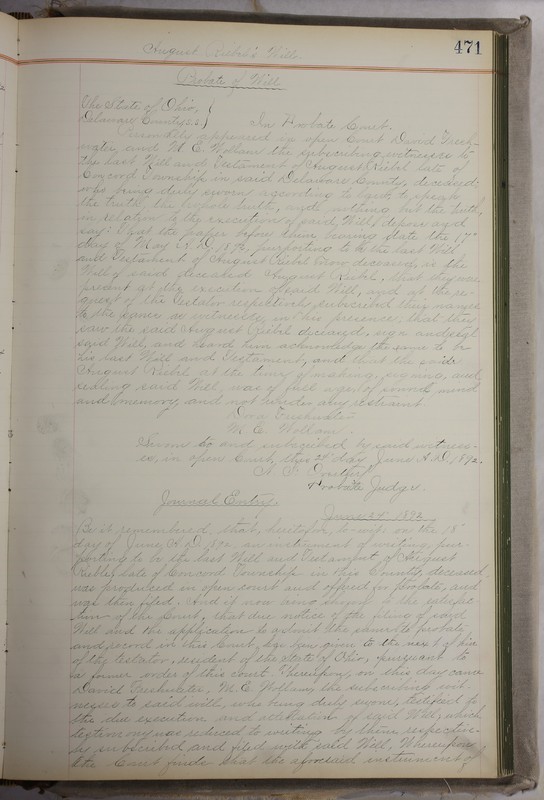 471
August Riebel's Will.
Probate of Will
The State of Ohio,
Delaware County, S.S. In Probate Court.
Personally appeared in open Court David Fresh-
water, and M. E. Wollam the subscribing witnesses to
the last Will and Testament of August Riebel late of
Concord Township in said Delaware County, deceased;
who being duly sworn according to law, to speak
the truth, the whole truth, and nothing but the truth,
in relation to the execution of said Will, depose and
say: That the paper before them bearing date the 17"
day of May A.D. purporting to be the last Will
and Testament of August Riebel now deceased, is the
Will of said deceased August Riebel, that they were
present at the execution of said Will, and at the re-
quest of the Testator respectively subscribed their names
to the same as witnesses, in his presence, that they
saw the said August Riebel deceased, sign and seal
said Will, and heard him acknowledge the same to be
his last Will and Testament, and that the said
August Riebel at the time of making, signing, and
sealing said Will, was of full age, of sound mind
and memory, and not under any restraint.
Freshwater
M. E. Wollam.
Sworn to and subscribed by said witness-
es, in open Court, this 24" day June A.D. 1892.
Probate Judge.
Journal Entry.
June 24" 1892.
Be it remembered, that, heretofore, to-wit: on the 18"
day of June, A.D. 1892 an instrument of writing, pur-
porting to be the last Will and Testament of August
Riebel, late of Concord Township in this County, deceased,
was produced in open court and offered for Probate, and
was then filed. And it now being shown to the satisfac-
tion of the Court, that due notice of the filing of said
Will and the application to admit the same to probate
and record in this Court, has been given to the next of kin
of the testator, resident of the State of Ohio, pursuant to
a former order of this court. Thereupon, on this day came
David Freshwater, M. E. Wollam, the subscribing wit-
nesses to said will, who being duly sworn, testified to
the due execution and attestation of said Will, which
testimony was reduced to writing by them respective-
ly subscribed and filed with said Will. Whereupon
the Court finds that the aforesaid instrument of